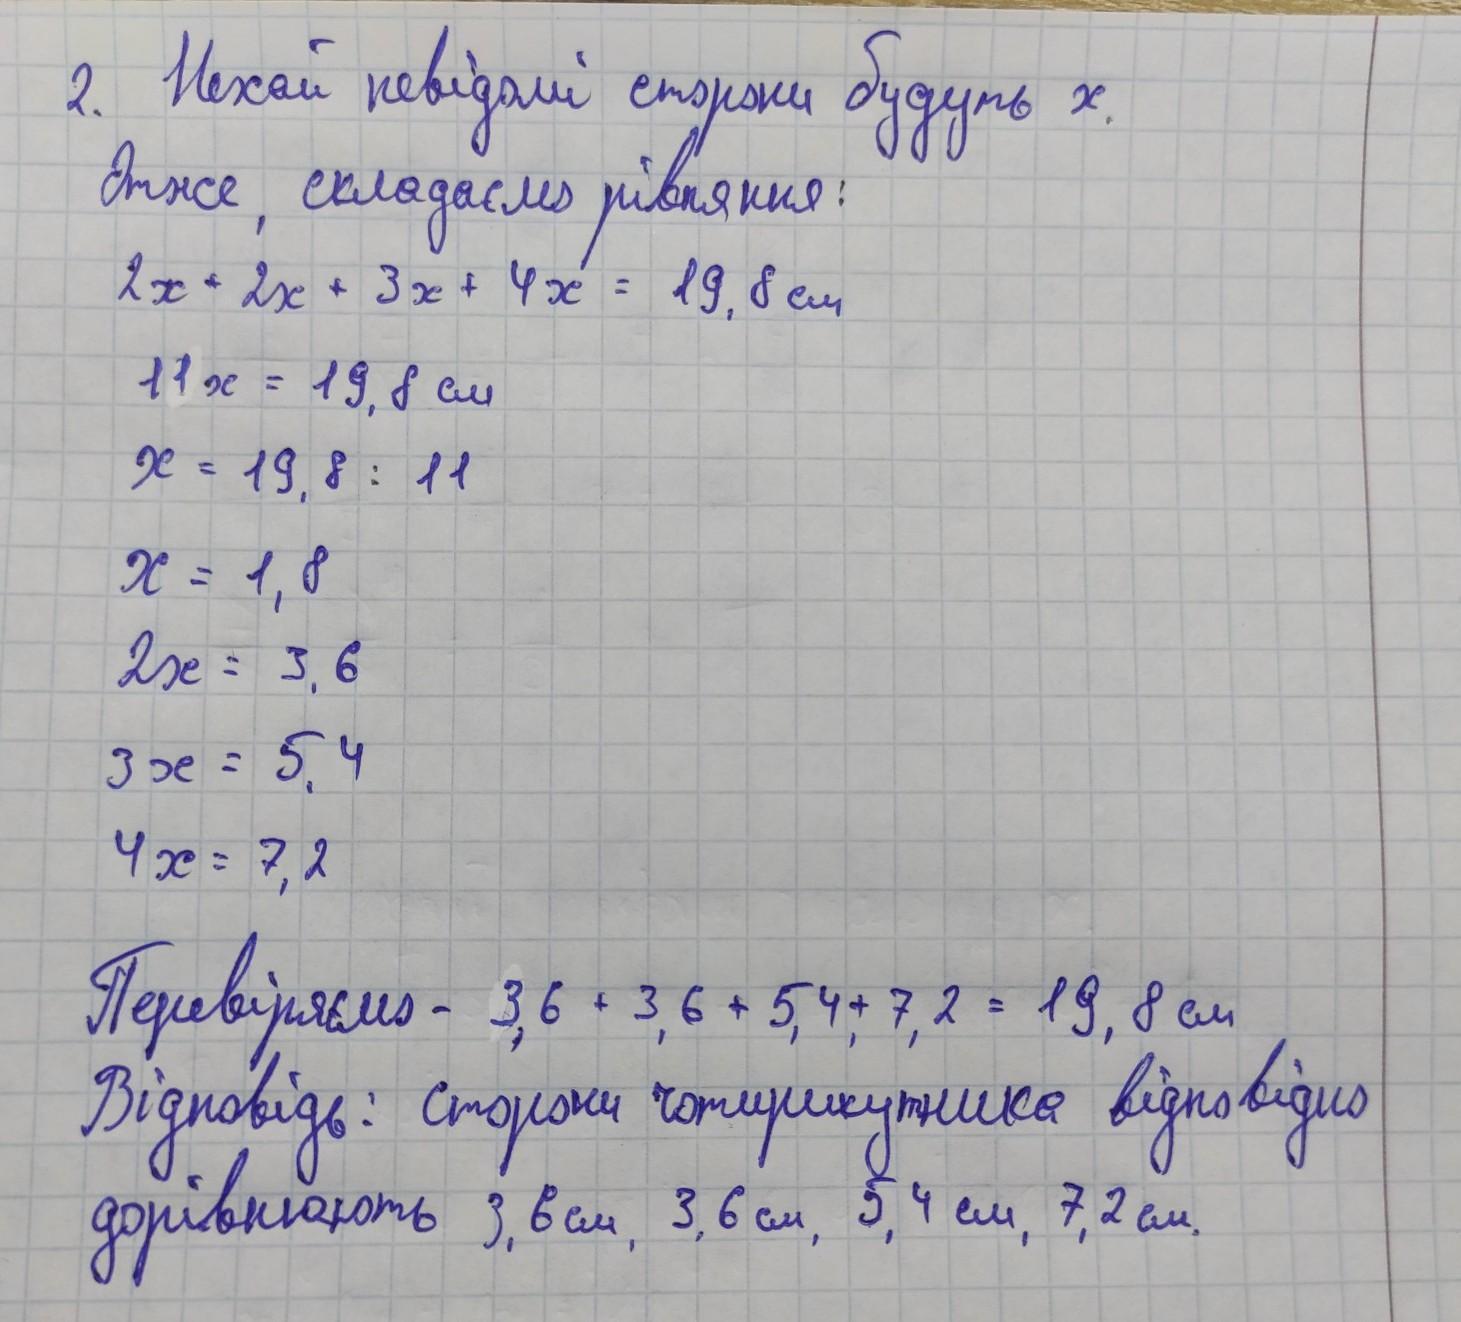 2. Нехай невідомі сторони будуть х.
Отже, складаємо рівняння:
2х + 2х + 3х + 4х = 19,8 см
11х = 19,8 см
х = 19,8 : 11
х = 1,8
2х = 3,6
3х = 5,4
4х = 7,2
Перевіряємо - 3,6 + 3,6 + 5,4 + 7,2 = 19,8 см
Відповідь: сторони чотирикутника відповідно
дорівнюють 3,6 см, 3,6 см, 5,4 см, 7,2 см.